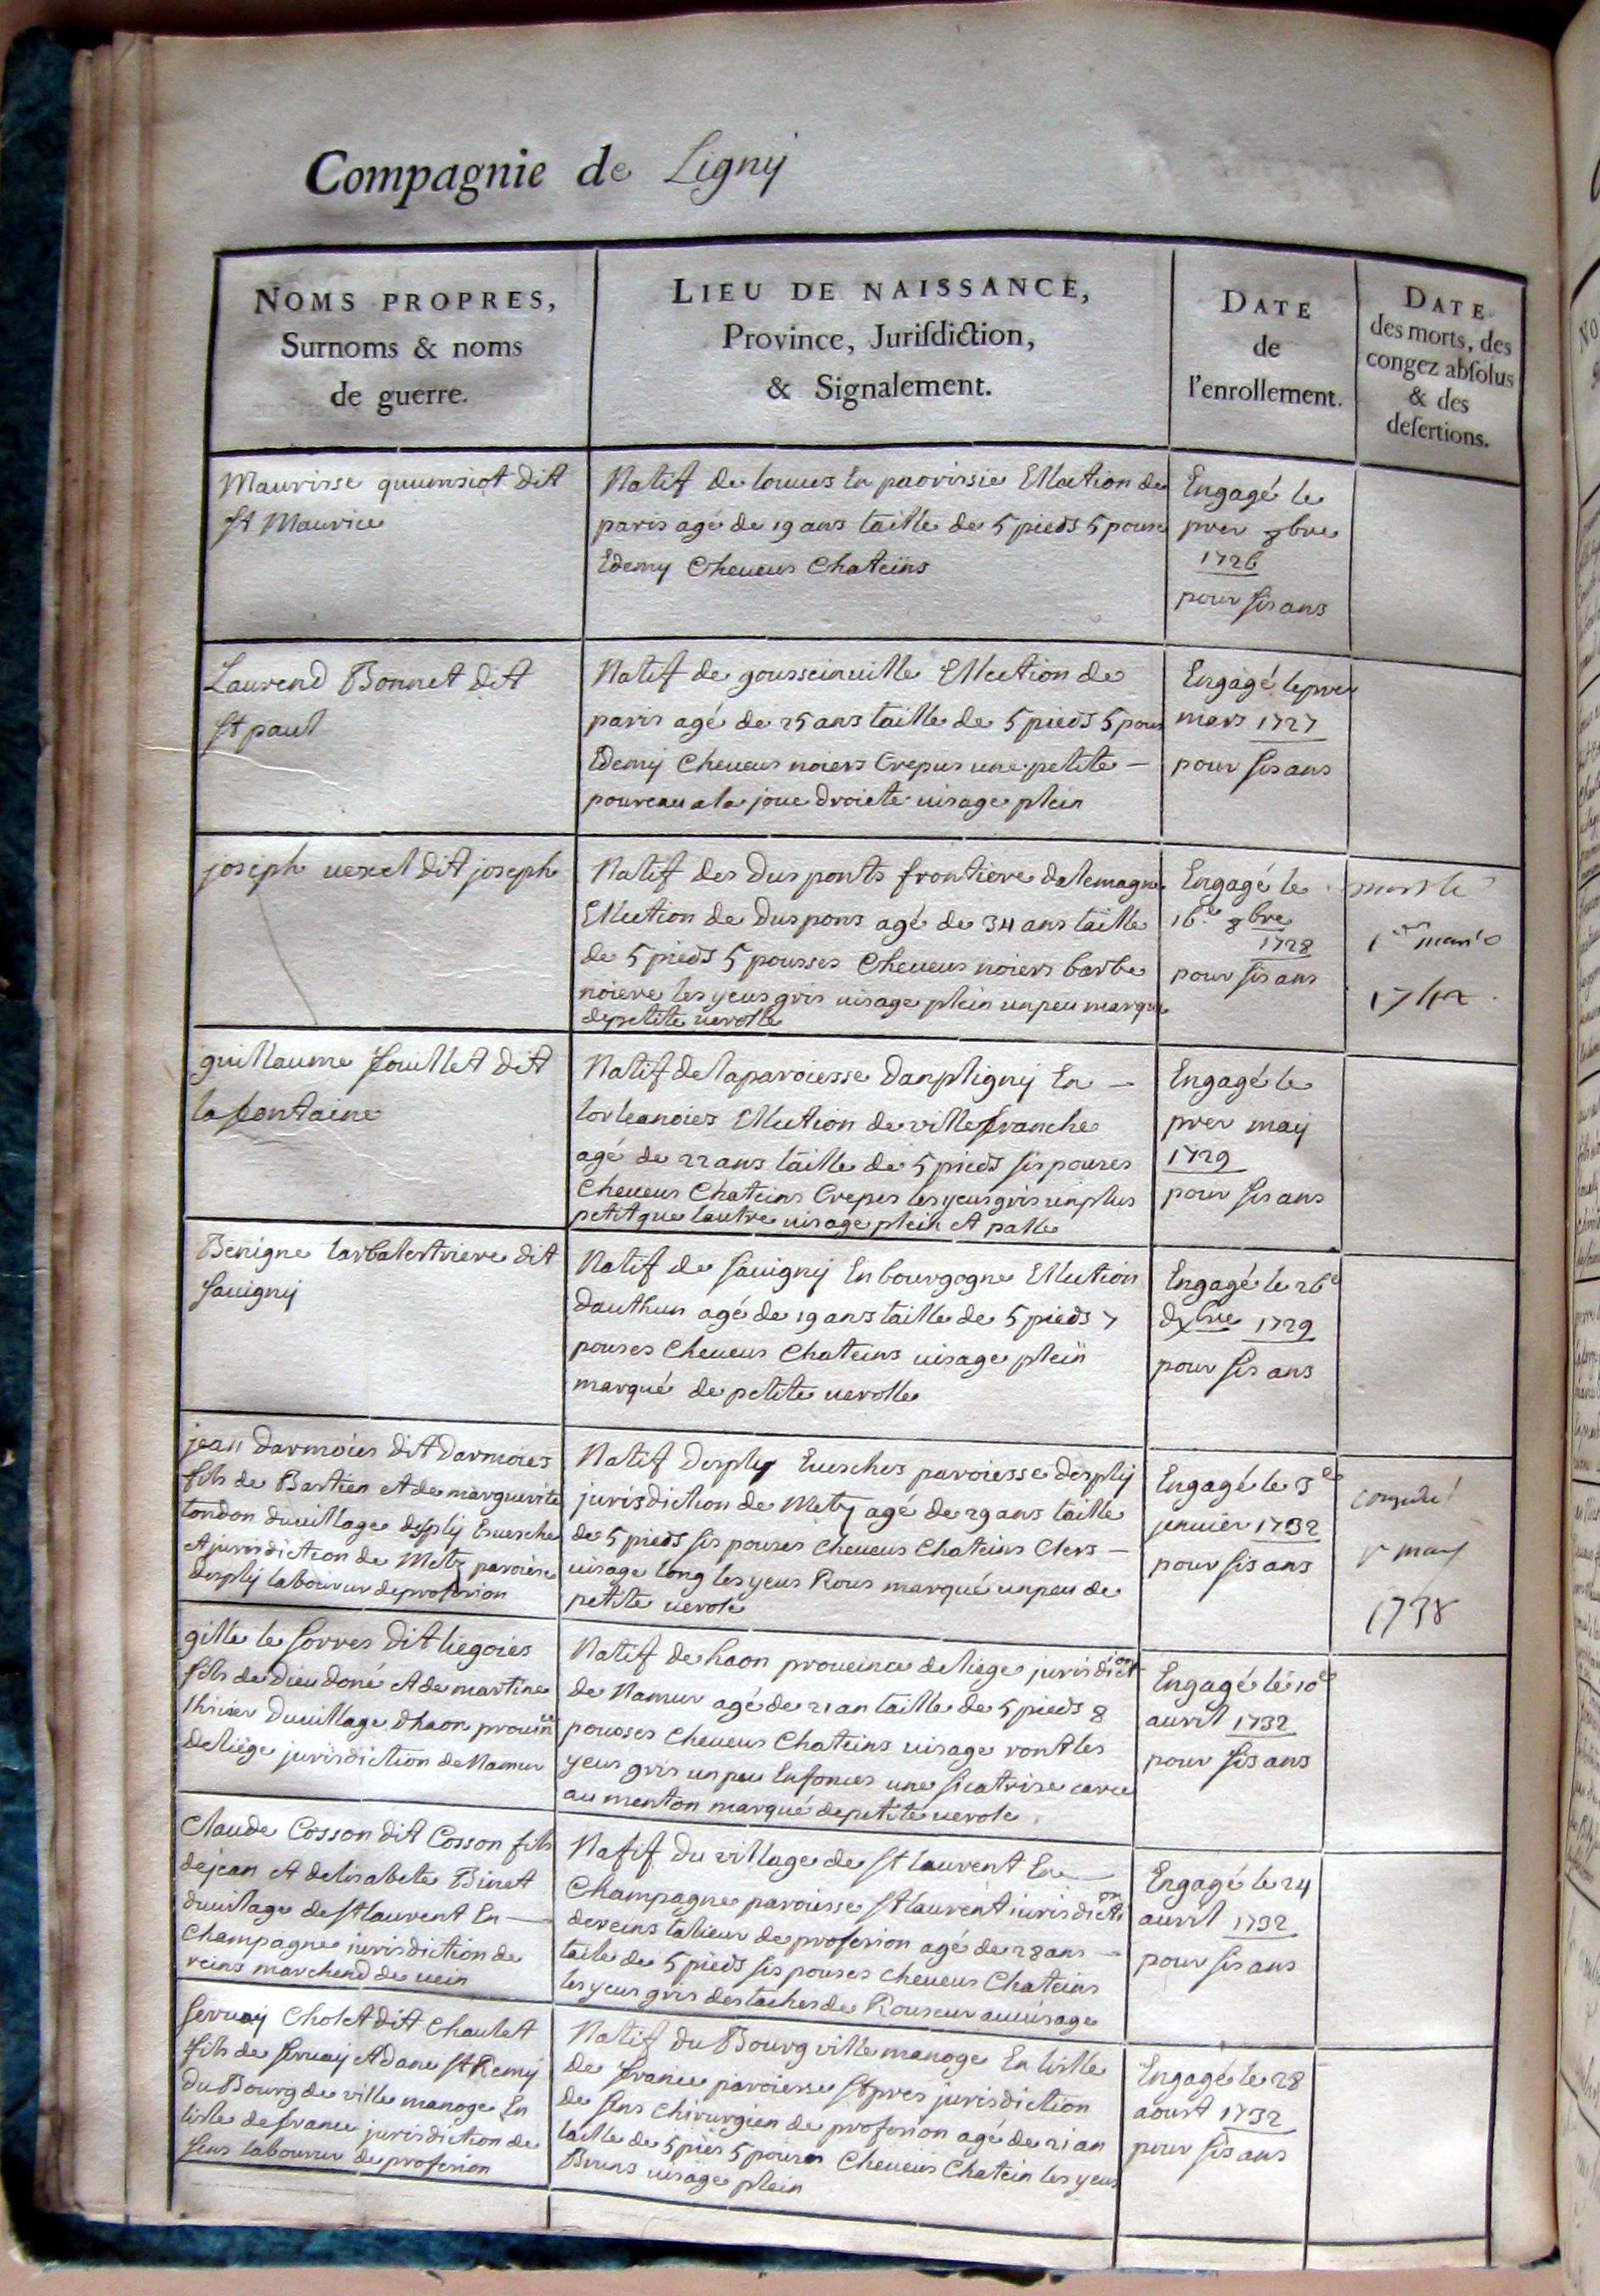 Compagnie de Ligny
NOMS PROPRES,
Surnoms & noms
de guerre.
LIEU DE NAISSANCE,
Province, Jurisdiction,
& Signalement.
DATE
de
l'enrollement.
DATE
des morts, des
congez absolus
& des
desertions.
Maurisse dit
st Maurice
Natif de En Ellection de
paris agé de 19 ans taille de 5 pieds 5 pouse
Edemy Cheueus Chateins
Engagé le
prer 8bre
1726
pour sis ans
Laurend Bonnet dit
st paul
Natif de gousseinuille Ellection de
paris agé de 25 ans taille de 5 pieds 5 pous
Edemy Cheueus noiers Crepus une petite
poureau a la joue droiete uisage plein
Engagé le prer
mars 1727
pour sis ans
joseph uexel dit joseph
Natif des Dus ponts frontiere dalemagne
Ellection de Duspons agé de 34 ans taille
de 5 pieds 5 pousses Cheueus noiers barbe
noiere les yeus gris uisage plein un peu marque
depetite uerolle
Engagé le
16e 8bre
1728
pour sis ans
mort le
1er
1742
guillaume fouillet dit
lafontaine
Natif de la paroiesse danpligny En
lorleanoies Ellection de villefranche
agé de 22 ans taille de 5 pieds sis pouses
Cheueus Chateins Crepes les yeus gris un plus
petit que lautre uisage plein et palle
Engagé le
prer may
1729
pour sis ans
Benigne larbalestriere dit
sauigny
Natif de sauigny En bourgogne Ellection
dauthun agé de 19 ans taille de 5 pieds 7
pouses Cheueus Chateins uisage plein
marqué de petite uerolle
Engagé le 26e
dxbre 1729
pour sis ans
jean darmoies dit darmoies
fils de Bastien et de marguerite
tondon duuillage desply Euesche
et jurisdiction de Metz paroiese
desply laboureur de profesion
Natif desply Euesches paroiesse desply
jurisdiction de Metz agé de 29 ans taille
de 5 pieds sis pouses Cheueus Chateins Clers
uisage long les yeus Rous marqué un peu de
petite uerole
Engagé le 3e
januier 1732
pour sis ans
congedié
1er may
1738
gille le sorres dit liegoies
fils de Dieu doné et de martine
duuillage dhaon prouince
deliége jurisdiction de Namur
Natif de haon proueince de liege jurisdiction
de Namur agé de 21 an taille de 5 pieds 8
pouoses Cheueus Chateins uisage ront les
yeus gris un peu Enfonces une sicatrise caree
au menton marqué de petite uerole
Engagé le 10e
auril 1732
pour sis ans
Claude Cosson dit Cosson fils
de jean et delisabete Binet
duuillage de st laurent En
Champagne iurisdiction de
reins marchend de uein
Natif du village de st laurent En
Champagne paroisse st laurent iurisdiction
de reins talieur de profesion agé de 28 ans
taile de 5 pieds sis pouses cheueus Chateins
les yeus gris des taches de Rouseur auuisage
Engagé le 24
auril 1732
pour sis ans
seruay Cholet dit Chaulet
fils de seruay et danë st Remy
du Bourg de ville manoge En
lisle de france jurisdiction de
sens laboureur de profesion
Natif du Bourg ville manoge En lisle
de france paroiesse st pres jurisdiction
de sens Chirurgien de profesion agé de 21 an
taille de 5 piés 5 pouses Cheueus Chatein les yeus
Bruns uisage plein
Engagé le 28
aoust 1732
pour sis ans